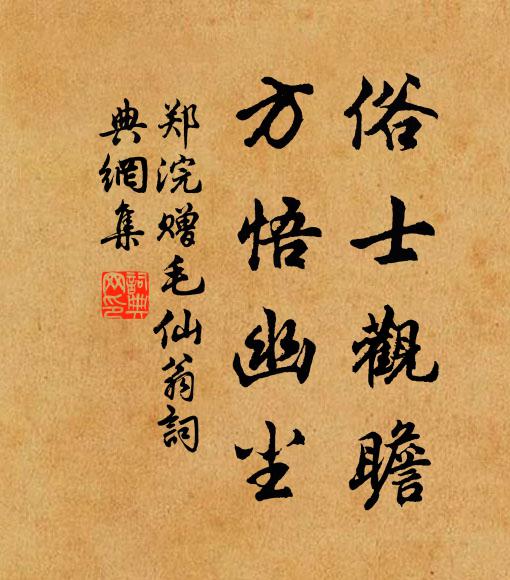 俗士觀瞻
方悟幽尘
郑浣赠毛仙翁詞
典網集
詞典網印